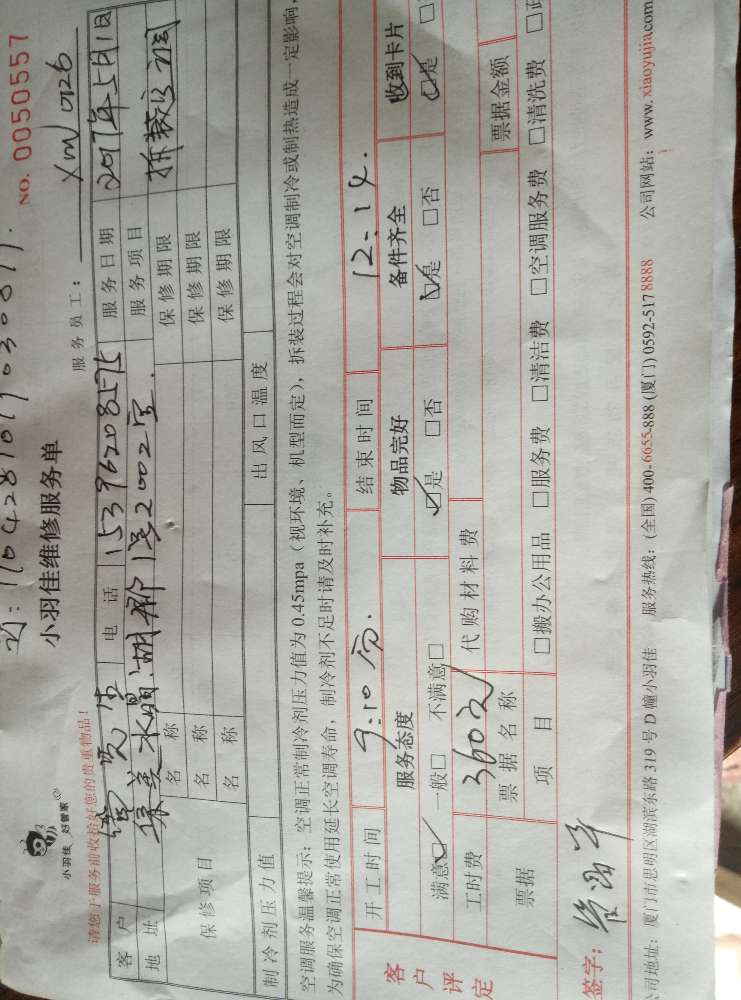 小羽佳 好管家
小羽佳维修服务单
NO. 0050557
请您于服务前收拾好您的贵重物品!
服务员工: xm0126
客户 电话 15396208575 服务日期 2017年5月1日
地址 水晶湖郡 2002室. 服务项目
保修项目 名称 保修期限
名称 保修期限
名称 保修期限
制冷剂压力值 出风口温度
空调服务温馨提示: 空调正常制冷剂压力值为0.45mpa (视环境、机型而定), 拆装过程会对空调制冷或制热造成一定影响,
为确保空调正常使用延长空调寿命, 制冷剂不足时请及时补充。
客户评定
开工时间 9:10分. 结束时间 12:14.
服务态度 物品完好 备件齐全 收到卡片
满意☑ 一般□ 不满意□ ☑是 □否 ☑是 □否 ☑是
工时费 360元 代购材料费
票据 票据名称 票据金额
项目 □搬办公用品 □服务费 □清洁费 □空调服务费 □清洗费
签字:
公司地址: 厦门市思明区湖滨东路319号D幢小羽佳 服务热线: (全国) 400-6655-888 (厦门) 0592-5178888 公司网站: www.xiaoyujia.com